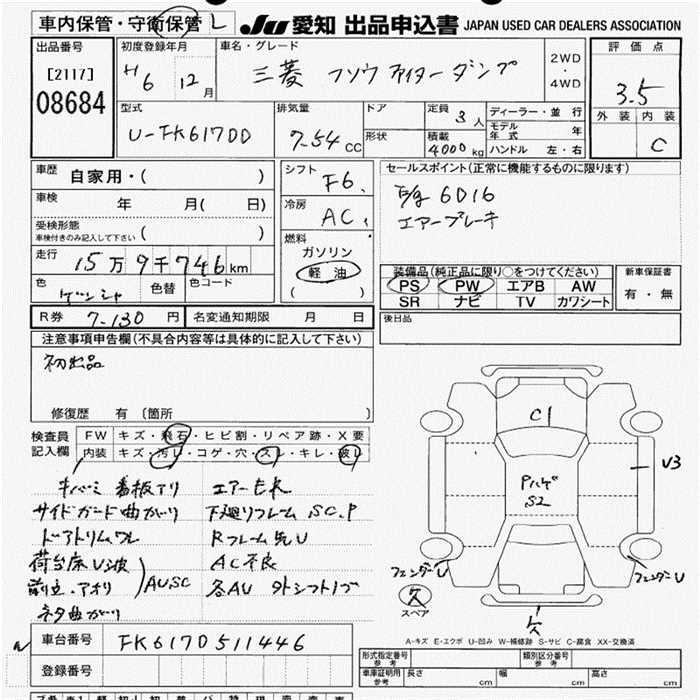 車内保管・守衛保管 L JU 愛知 出品申込書 JAPAN USED CAR DEALERS ASSOCIATION
出品番号 初度登録年月 車名・グレード 2WD ・ 4WD 評価点
[2117] H 6 12月 三菱 フソウ ファイター ダンプ 3.5
08684 外装 内装
型式 排気量 ドア 定員 3人 ディーラー・並行
U-FK617DD 7.54 CC 形状 積載 4000kg モデル年式 年 C
ハンドル 左・右
車歴 自家用・( ) シフト F6 セールスポイント(正常に機能するものに限ります)
車検 年 月( 日) 冷房 AC 6D16
受検形態 エアーブレーキ
車検付きのみ記入して下さい ( ) 燃料
走行 15万9千746km ガソリン
色 色替 色コード 軽油 装備品(純正品に限り○をつけてください) 新車保証書
( ) PS PW エアB AW 有・無
SR ナビ TV カワシート
R券 7-130 円 名変通知期限 月 日 後日品
注意事項申告欄(不具合内容等は具体的に記入して下さい)
初出品
修復歴 有〔箇所 〕
検査員 FW キズ・飛石・ヒビ割・リペア跡・X要
記入欄 内装 キズ・汚レ・コゲ・穴・スレ・キレ・破レ
C1
U3
Pハゲ
S2
キバミ 看板アリ エアーモレ
サイドガード曲がり 下廻りフレーム SC.P
ドアトリムワレ Rフレーム先U
荷台床U波 AC不良
前立.アオリ AU.SC 各AU
ネタ曲がり
フェンダーU フェンダーU
欠 欠
スペア
A-キズ E-エクボ U-凹み W-補修跡 S-サビ C-腐食 XX-交換済
車台番号 FK617D511446
登録番号
形式指定番号 参考 類別区分番号 参考
車庫証明用 参考 長さ cm 幅 cm 高さ cm